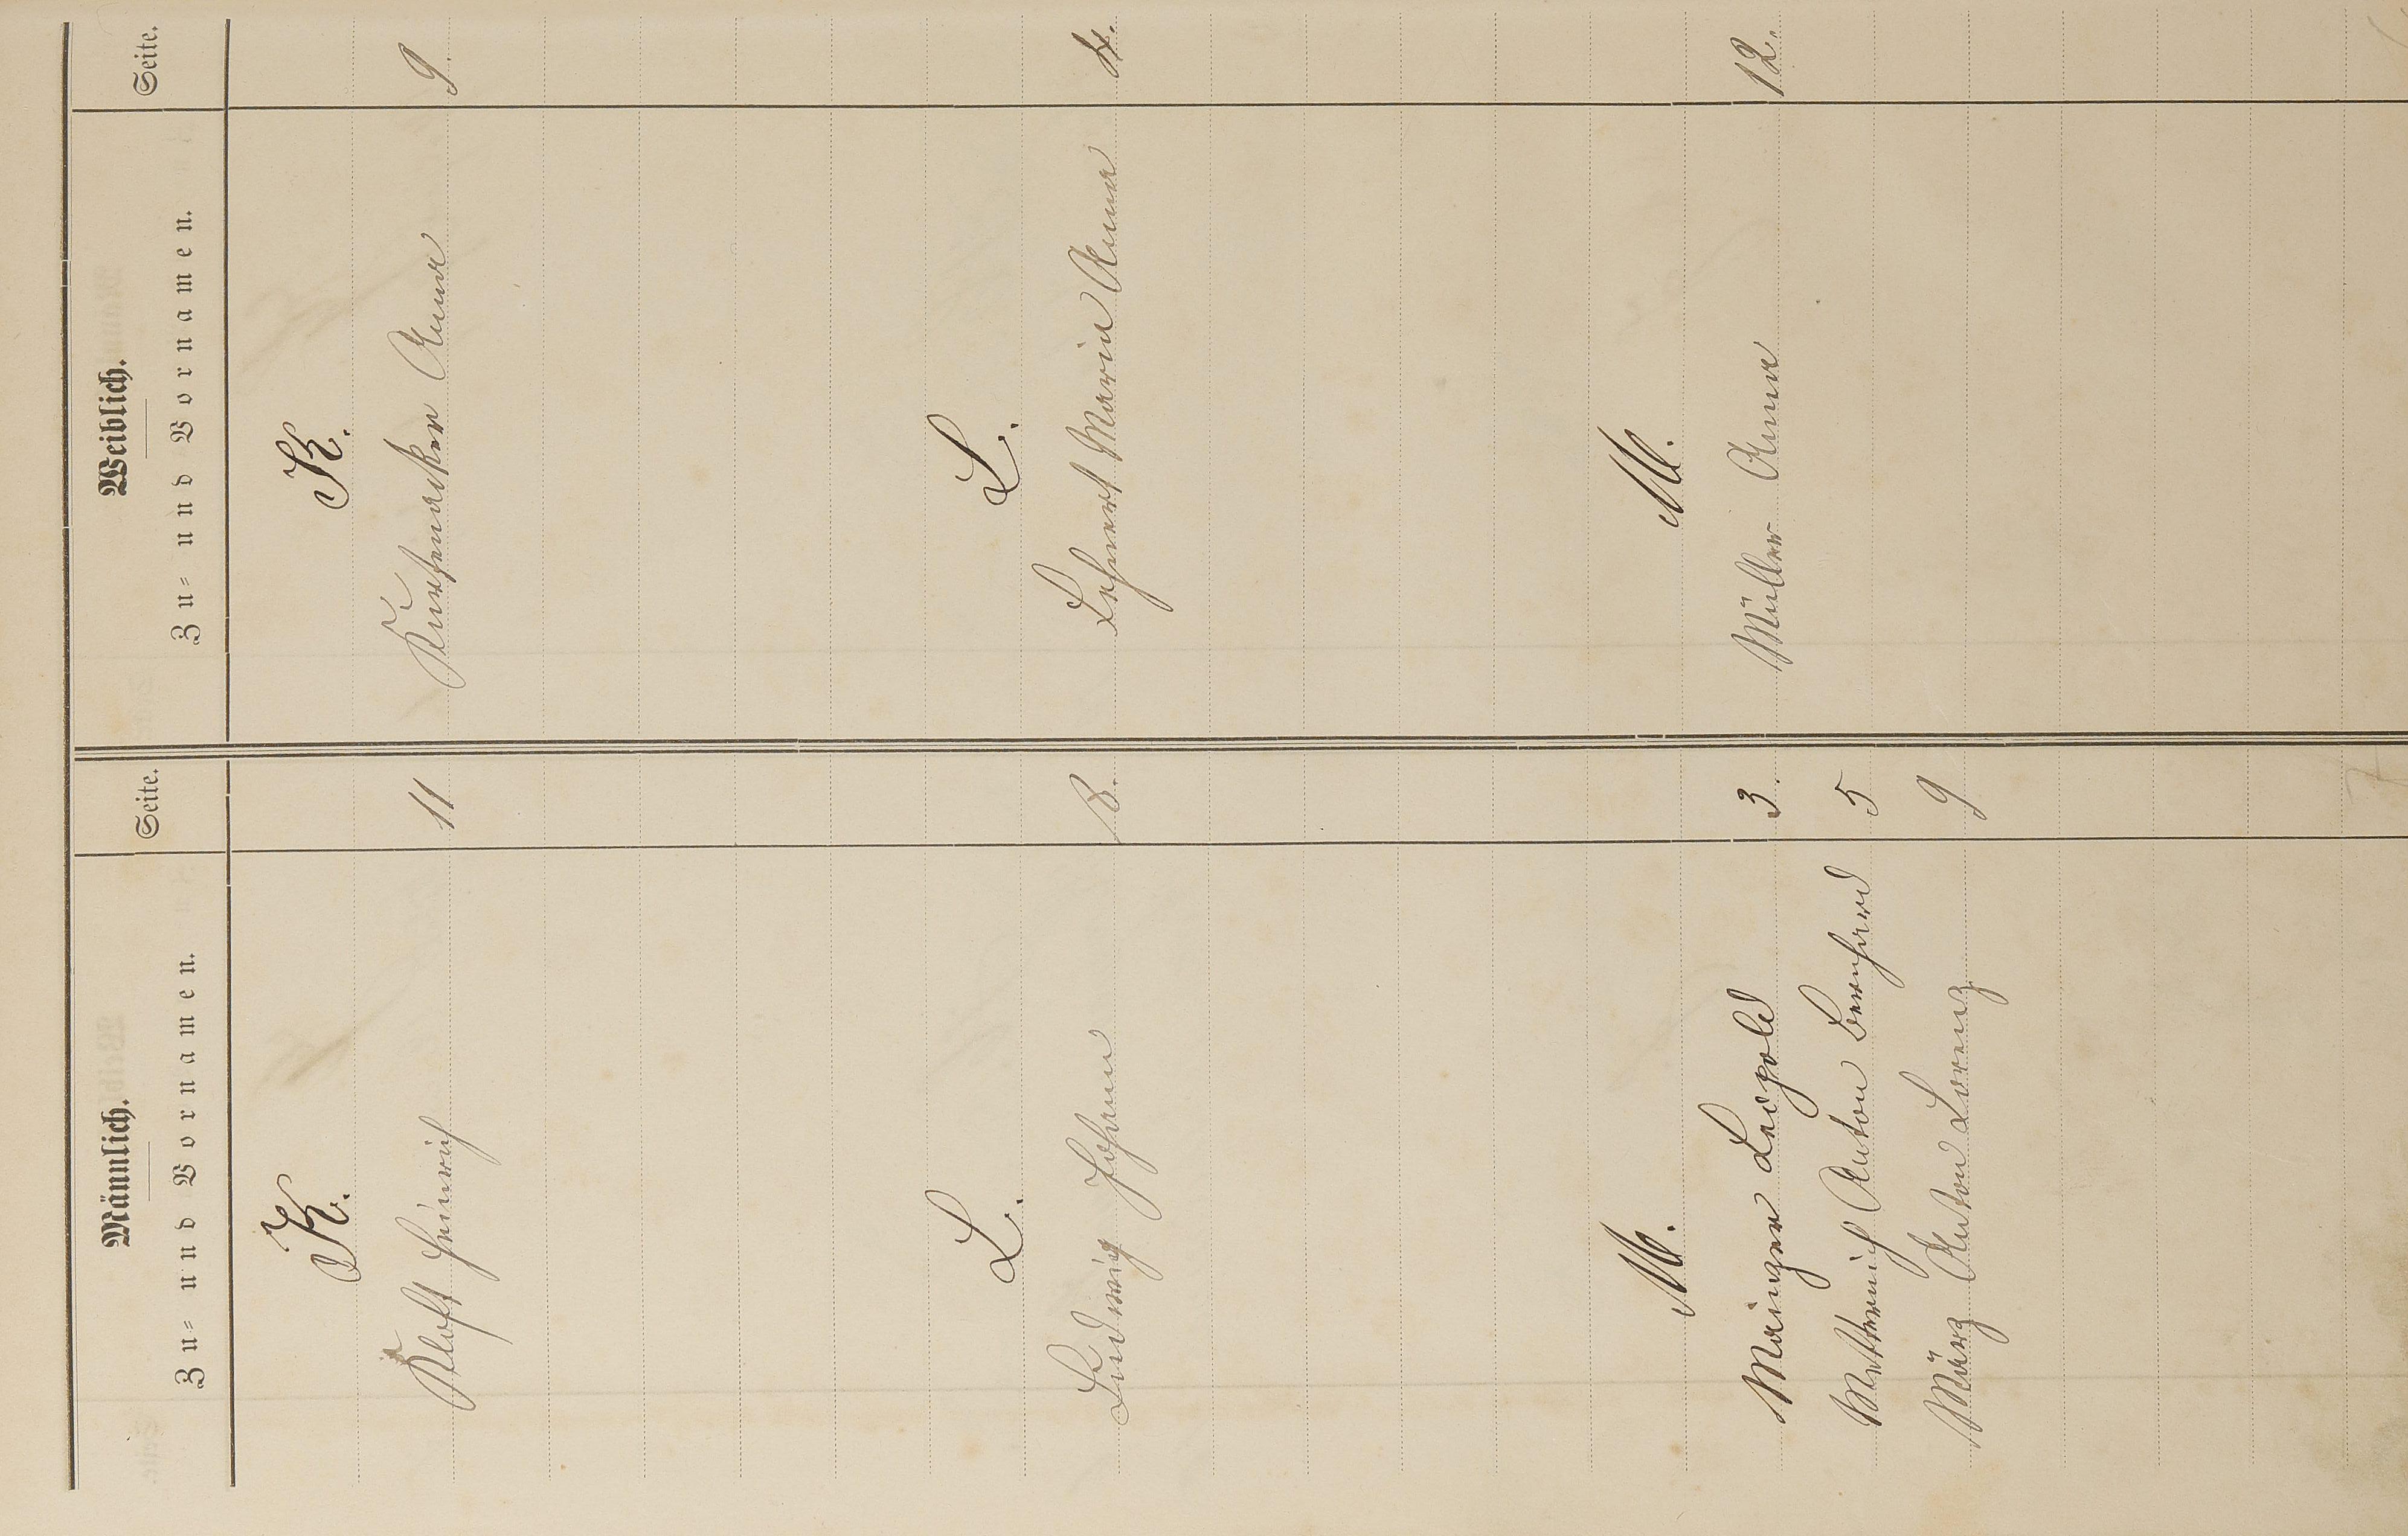 Männlich. Weiblich.
Zu= und Vornamen. Seite. Zu= und Vornamen. Seite.
K. K.
Kloft Heinrich 11 Kurzenacker Anna 9.
L. L.
Ludwig Johann 8. Lehnert Maria Anna 4.
M. M.
Mainzer Leopold 3. Müller Anna 12.
Metternich Anton Bernhard 5
März Anton Lorenz 9